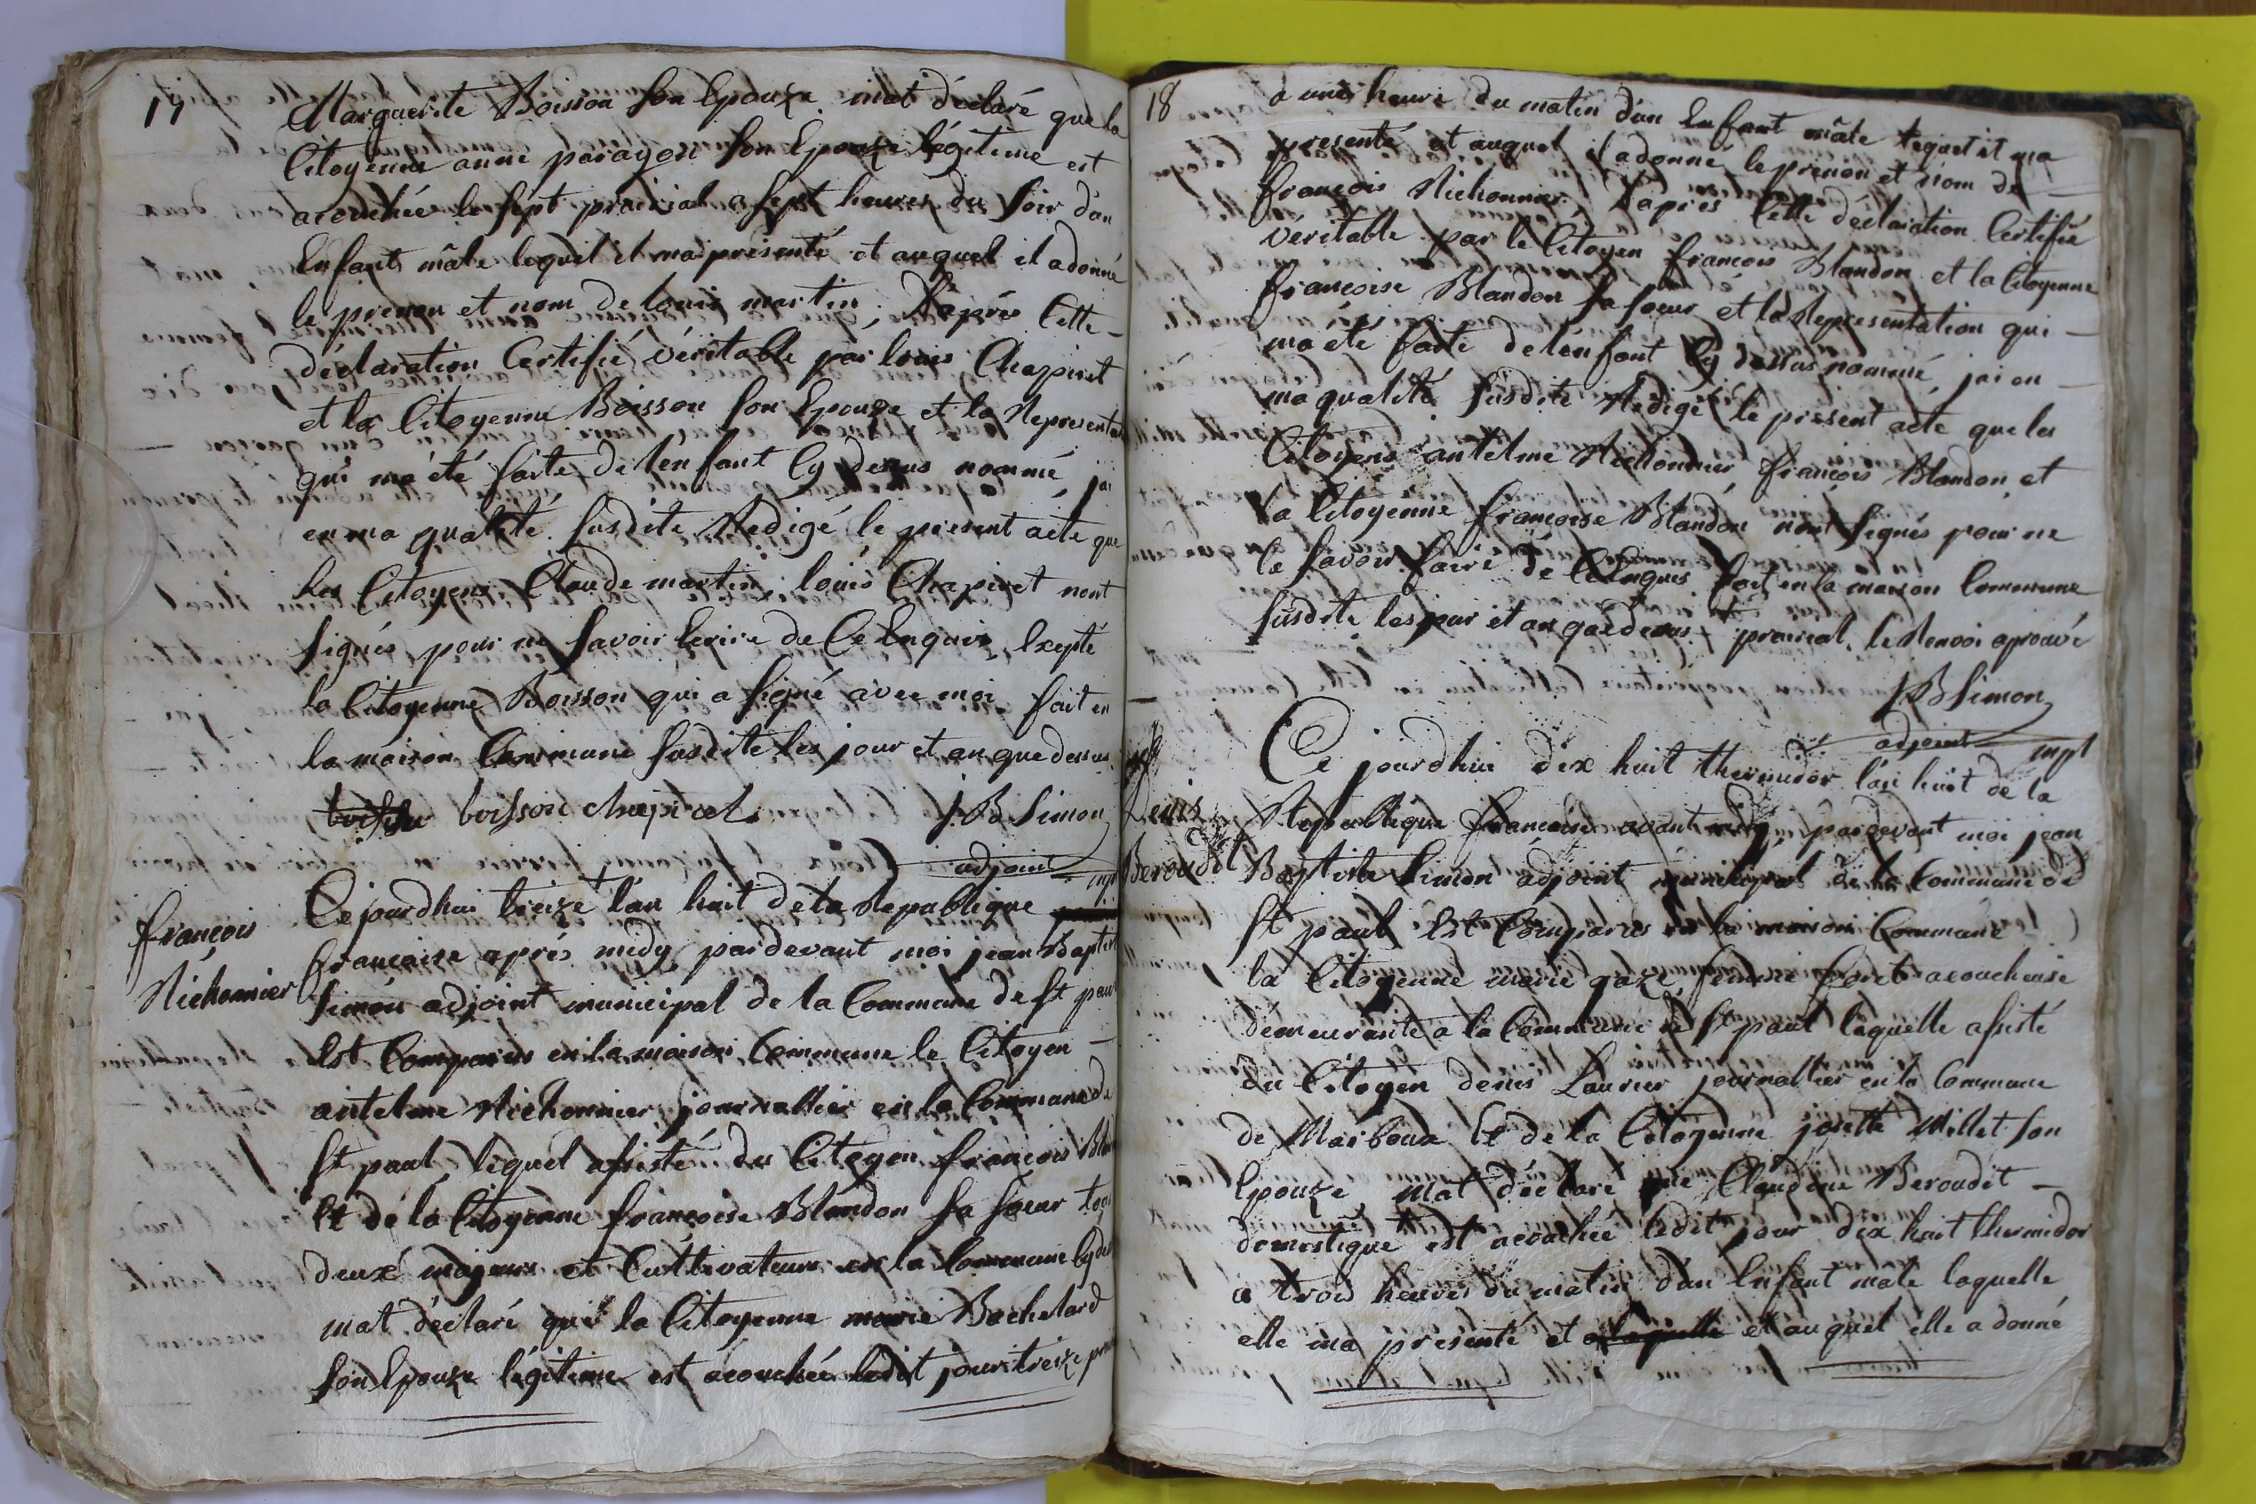 17
Marguerite Boisson son Epouze mat déclaré que la
Citoyenne anne paragon son Epouze légitime est
acouchée le sept prairial a sept heures du soir d'un
Enfant mâle lequel il ma présenté et auquel il a donné
le prenon et nom de louis martin. D'après Cette
déclaration Certifié véritable par louis Chapivet
et la Citoyenne Boisson son Epouze et la Representa
qui ma été faite de l'énfant Cy dessus nommé j'ai
en ma qualité susdite Redigé le present acte que
les Citoyens Claude martin, louis Chapivet nont
signés pour ne savoir Ecrire de Ce Enquis, Exepté
la Citoyenne Boisson qui a signé avec moi fait en
la maison Commune susdite les jour et an que dessus
boisson chapivet
J.B Simon
adjoint mpl
françois
Nichonnier
Ce jourdhui treize † l'an huit de la Republique
francaise après midy pardevant moi jean Baptiste
Simon adjoint municipal de la Commune de St paul
Est Comparus en la maison Commune le Citoyen
antelme Nichonnier journallier en la Commune de
St paul, lequel assisté du Citoyen françois Blan
Et de la Citoyenne françoise Blandon sa soeur tous
deux majeurs et Cultivateurs en la Commune Cy des
mat déclaré que la Citoyenne marie Bachelard
son Epouze légitime est acouchée ledit jour treize prai
18
a une heure du matin d'un Enfant mâle lequel il ma
presenté et auquel il a donné le prenon et nom de
françois Nichonnier. D'après Cette déclaration Certifié
véritable par le Citoyen françois Blandon et la Citoyenne
françoise Blandon sa soeur et la Representation qui
ma été faite de l'énfant Cy dessus nommé, jai en
ma qualité susdite Redigé le présent acte que les
Citoyens antelme Nichonnier françois Blandon et
la Citoyenne françoise Blandon nont signés pour ne
le savoir faire de Ce Enquis fait en la maison Commune
susdite les jour et an que dessus † prairial le Renvoi aprouvé
J B Simon
adjoint mpl
Denis
Beroudit
Ce jourdhui dix huit thermidor l'an huit de la
Republique francaise avant midy, pardevant moi jean
Baptiste Simon adjoint municipal de la Commune de
St paul Est Comparus en la maison Commune
la Citoyenne marie gaze femme Coret acoucheuse
demeurante a la Commune de St paul laquelle assisté
du Citoyen denis Laurier journallier en la Commune
de Marboux Et de la Citoyenne josette Millet son
Epouze, mat déclaré que Claudine Beroudit
domestique est acouchée ledit jour dix huit thermidor
a trois heures du matin d'un Enfant male laquelle
elle ma presenté et a laquelle et auquel elle a donné